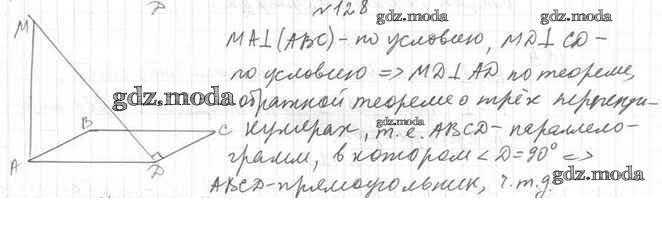 №128
gdz.moda
MA⊥(ABC) - по условию, MD⊥CD -
gdz.moda
по условию => MD⊥AD по теореме,
gdz.moda
обратной теореме о трёх перпенди-
кулярах, т.е. ABCD - параллело-
gdz.moda
грамм, в котором ∠D=90° =>
gdz.moda
ABCD - прямоугольник, ч.т.д.
gdz.moda
M
B
C
A
D